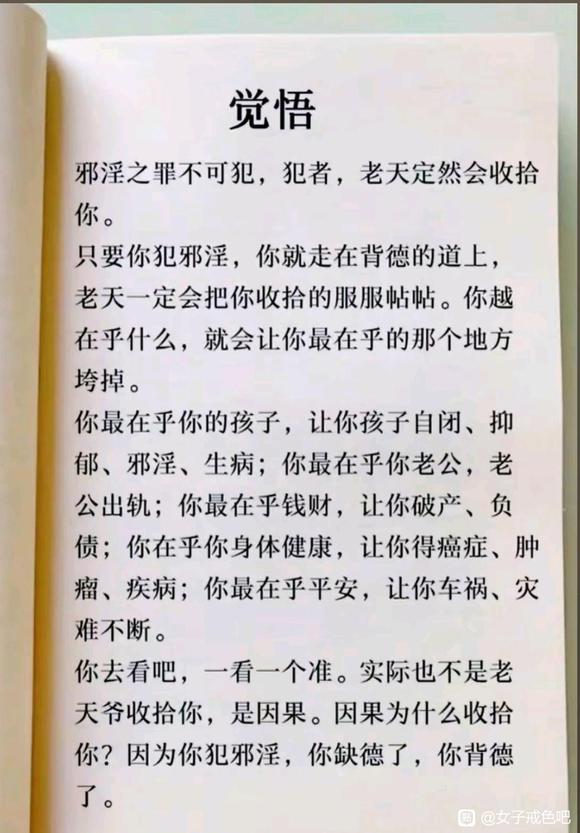 觉悟
邪淫之罪不可犯，犯者，老天定然会收拾
你。
只要你犯邪淫，你就走在背德的道上，
老天一定会把你收拾的服服帖帖。你越
在乎什么，就会让你最在乎的那个地方
垮掉。
你最在乎你的孩子，让你孩子自闭、抑
郁、邪淫、生病；你最在乎你老公，老
公出轨；你最在乎钱财，让你破产、负
债；你在乎你身体健康，让你得癌症、肿
瘤、疾病；你最在乎平安，让你车祸、灾
难不断。
你去看吧，一看一个准。实际也不是老
天爷收拾你，是因果。因果为什么收拾
你？因为你犯邪淫，你缺德了，你背德
了。
贴 @女子戒色吧